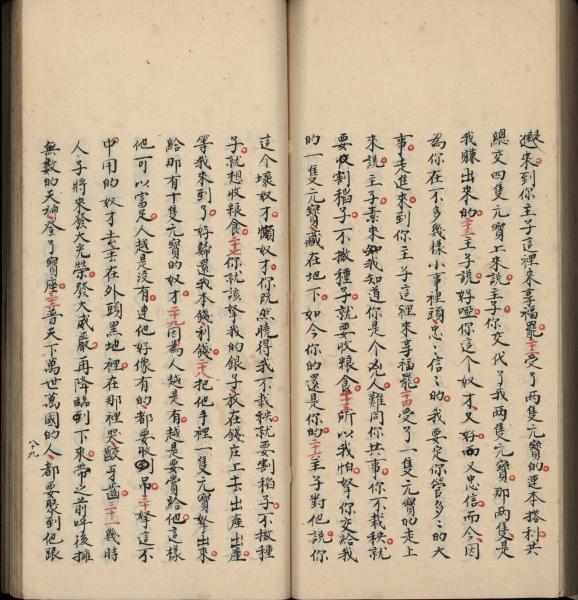 來到你主子這裡來享福罷二十二受了兩隻元寶的連本搭利共
總交四隻元寶上來說主子你交代了我兩隻元寶那兩隻是
我賺出來的二十三主子說好啞你這个奴才又好而又忠信而今因
為你在不多幾樣小事裡頭忠忠信信的我要定你管多多的大
事走進來到你主子這裡來享福罷二十四受了一隻元寶的走上
來說主子素來知我知道你是个凶人難同你共事你不栽秧就
要收割稻子不撒種子就要收粮食二十五所以我怕拏你交給我
的一隻元寶藏在地下如今你的還是你的二十六主子對他說你
這个壞奴才懶奴才你既然曉得我不栽秧就要割稻子不撒種
子就想收粮食二十七你就該拏我的銀子放在錢庄上去出產出產
等我來到了好歸還我本錢利錢二十八把他手裡一隻元寶拏出來
給那有十隻元寶的奴才二十九因為人越是有越是要賞給他這樣
他可以富足人越是沒有連他好像有的都要取吊三十拏這不
中用的奴才去丢在外頭黑地裡在那裡哭齩牙齒三十一幾時
人子將來發大光榮發大威嚴再降臨到下來帶之前呼後擁
無數的天神登了寶座三十二普天下萬世萬國的人都要聚到他跟
八九